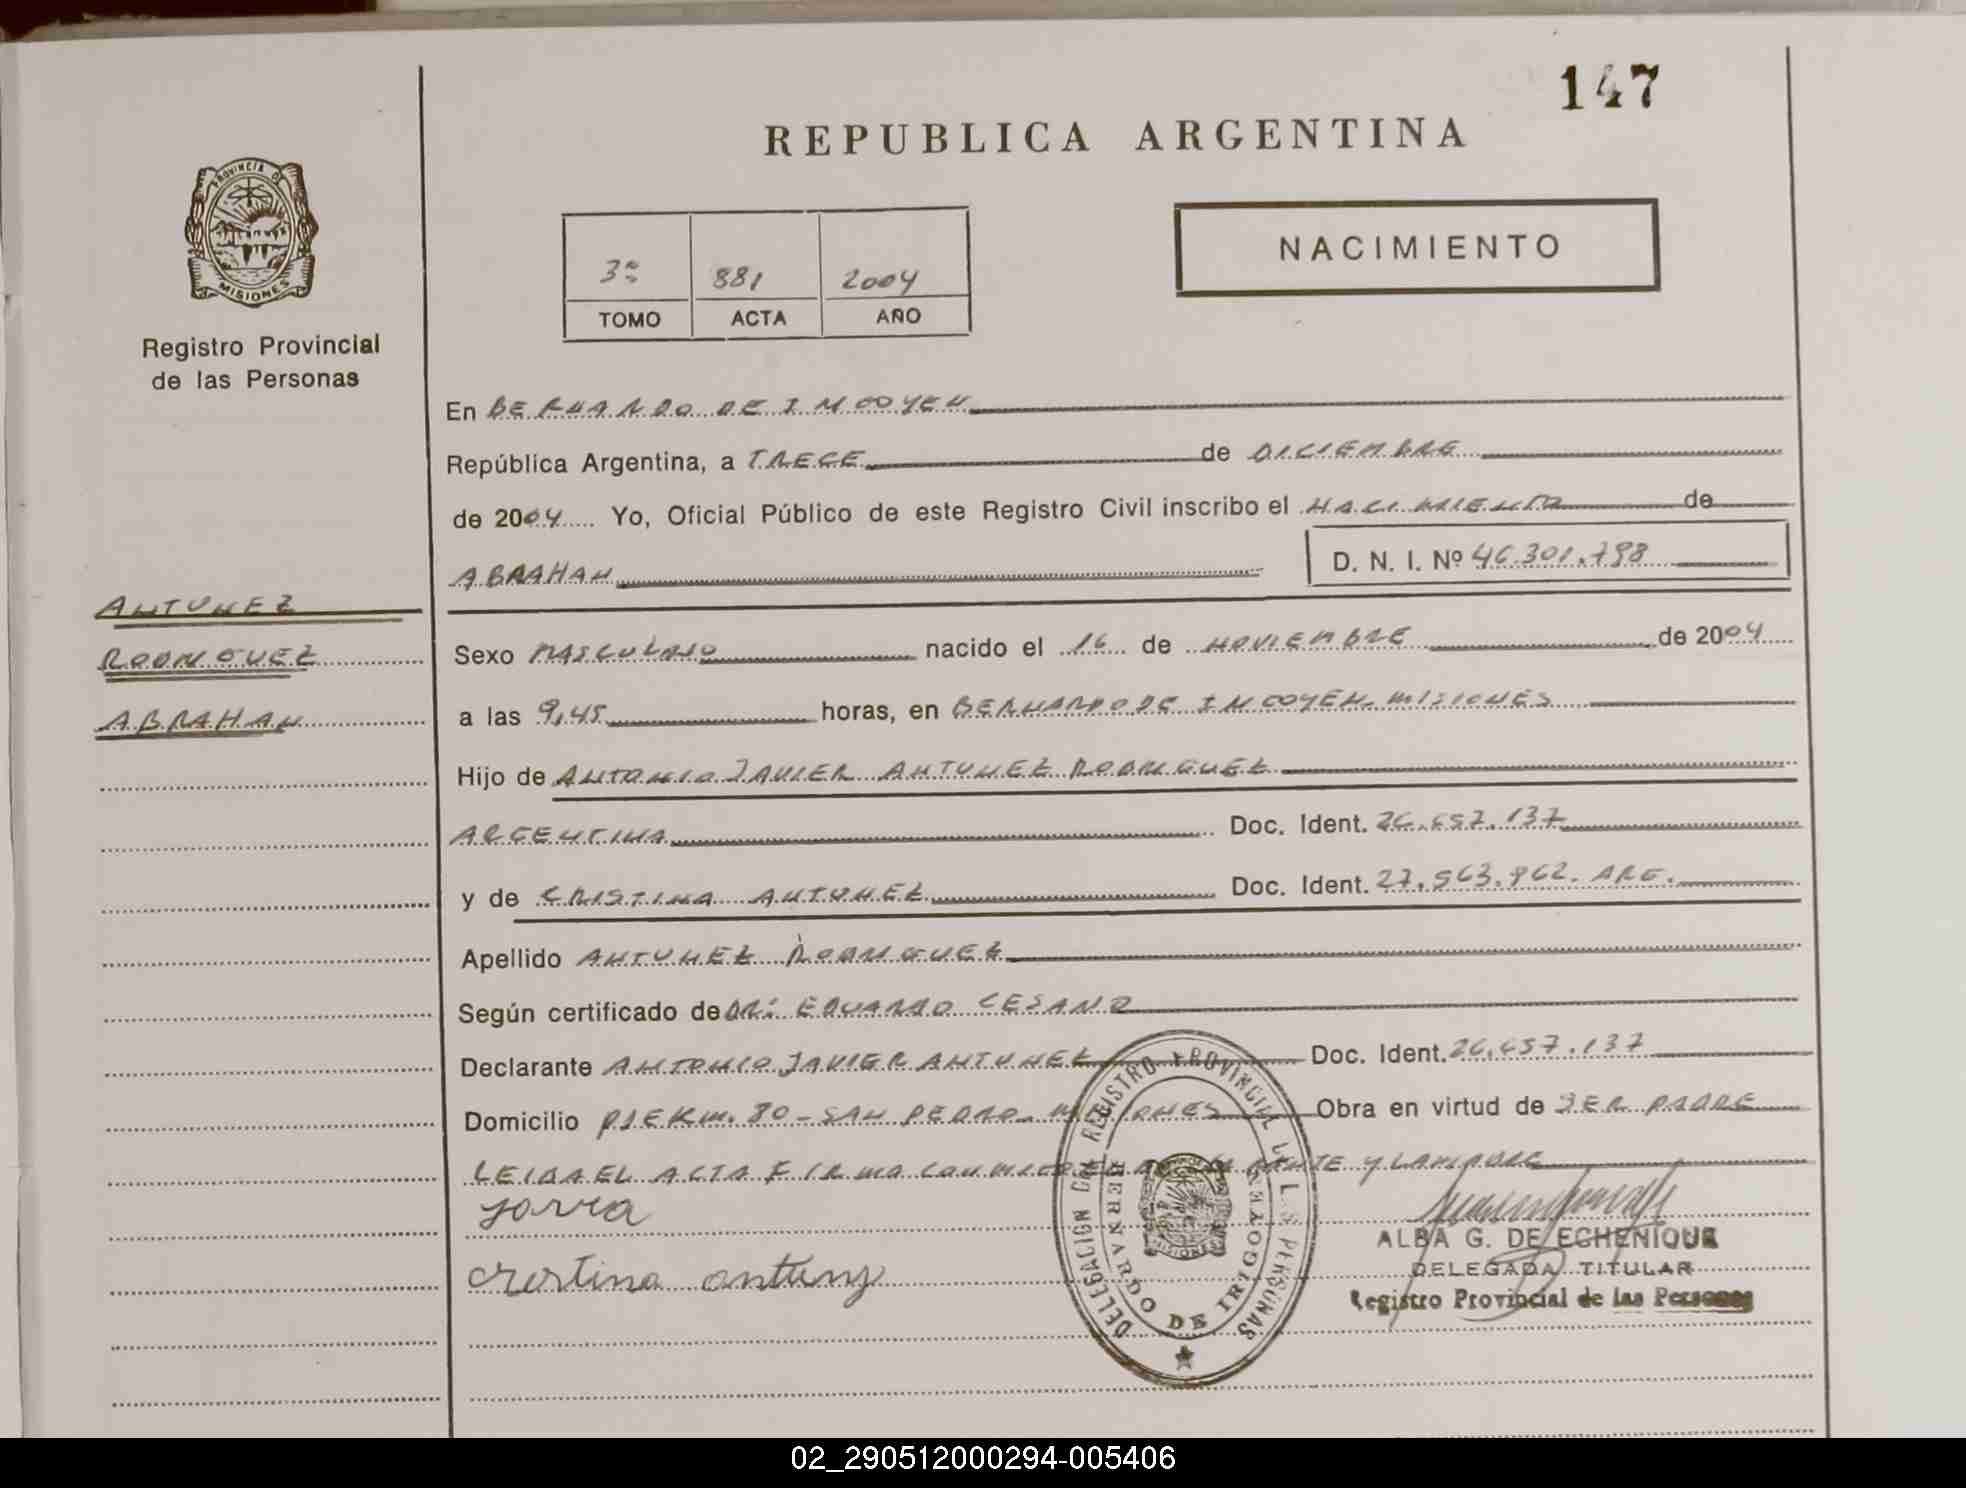 147
REPUBLICA ARGENTINA
PROVINCIA DE
MISIONES
Registro Provincial
de las Personas
NACIMIENTO
3º 881 2004
TOMO ACTA AÑO
En BERNARDO DE IRIGOYEN
República Argentina, a TRECE de DICIEMBRE
de 2004 Yo, Oficial Público de este Registro Civil inscribo el NACIMIENTO de
ABRAHAN
D. N. I. Nº 46.301.798
ANTUNEZ
RODRIGUEZ
ABRAHAN
Sexo MASCULINO nacido el 16 de NOVIEMBRE de 2004
a las 9,45 horas, en BERNARDO DE IRIGOYEN. MISIONES
Hijo de ANTONIO JAVIER ANTUNEZ RODRIGUEZ
ARGENTINA Doc. Ident. 26.657.137
y de CRISTINA ANTUNEZ Doc. Ident. 27.563.862. ARG.
Apellido ANTUNEZ RODRIGUEZ
Según certificado de DR: EDUARDO CESANO
Declarante ANTONIO JAVIER ANTUNEZ Doc. Ident. 26.657.137
Domicilio PJE Km. 80 - SAN PEDRO. MISIONES Obra en virtud de SER PADRE
LEIDA EL ACTA FIRMA CONMIGO Y LA MADRE
cristina
DELEGACION DEL REGISTRO PROVINCIAL DE LAS PERSONAS
BERNARDO DE IRIGOYEN
MISIONES
ALBA G. DE ECHENIQUE
DELEGADA TITULAR
Registro Provincial de las Personas
02_290512000294-005406